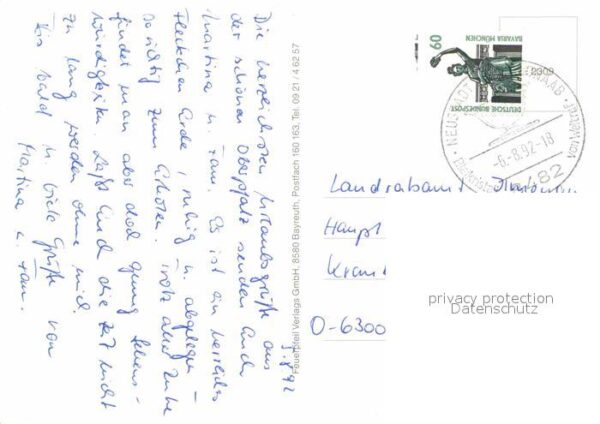 5.8.92
Die herzlichsten Urlaubsgrüße aus
der schönen Oberpfalz senden Euch
Martina u. Fam. Es ist ein herrliches
Fleckchen Erde, ruhig u. abgelegen –
so richtig zum Erholen. Trotz aller Ruhe
findet man aber doch genug Sehens-
würdigkeiten. Laßt Euch die Zeit nicht
zu lang werden ohne mich.
Bis bald u. viele Grüße von
Martina u. Fam.
Feuerpfeil Verlags GmbH, 8580 Bayreuth, Postfach 160 163, Tel. 09 21 / 4 62 57
60
BAVARIA MÜNCHEN
DEUTSCHE BUNDESPOST
2309
NEUSTADT
-6.-8.92-18
482
Landratsamt
Haupt
Kran
O-6300
privacy protection
Datenschutz